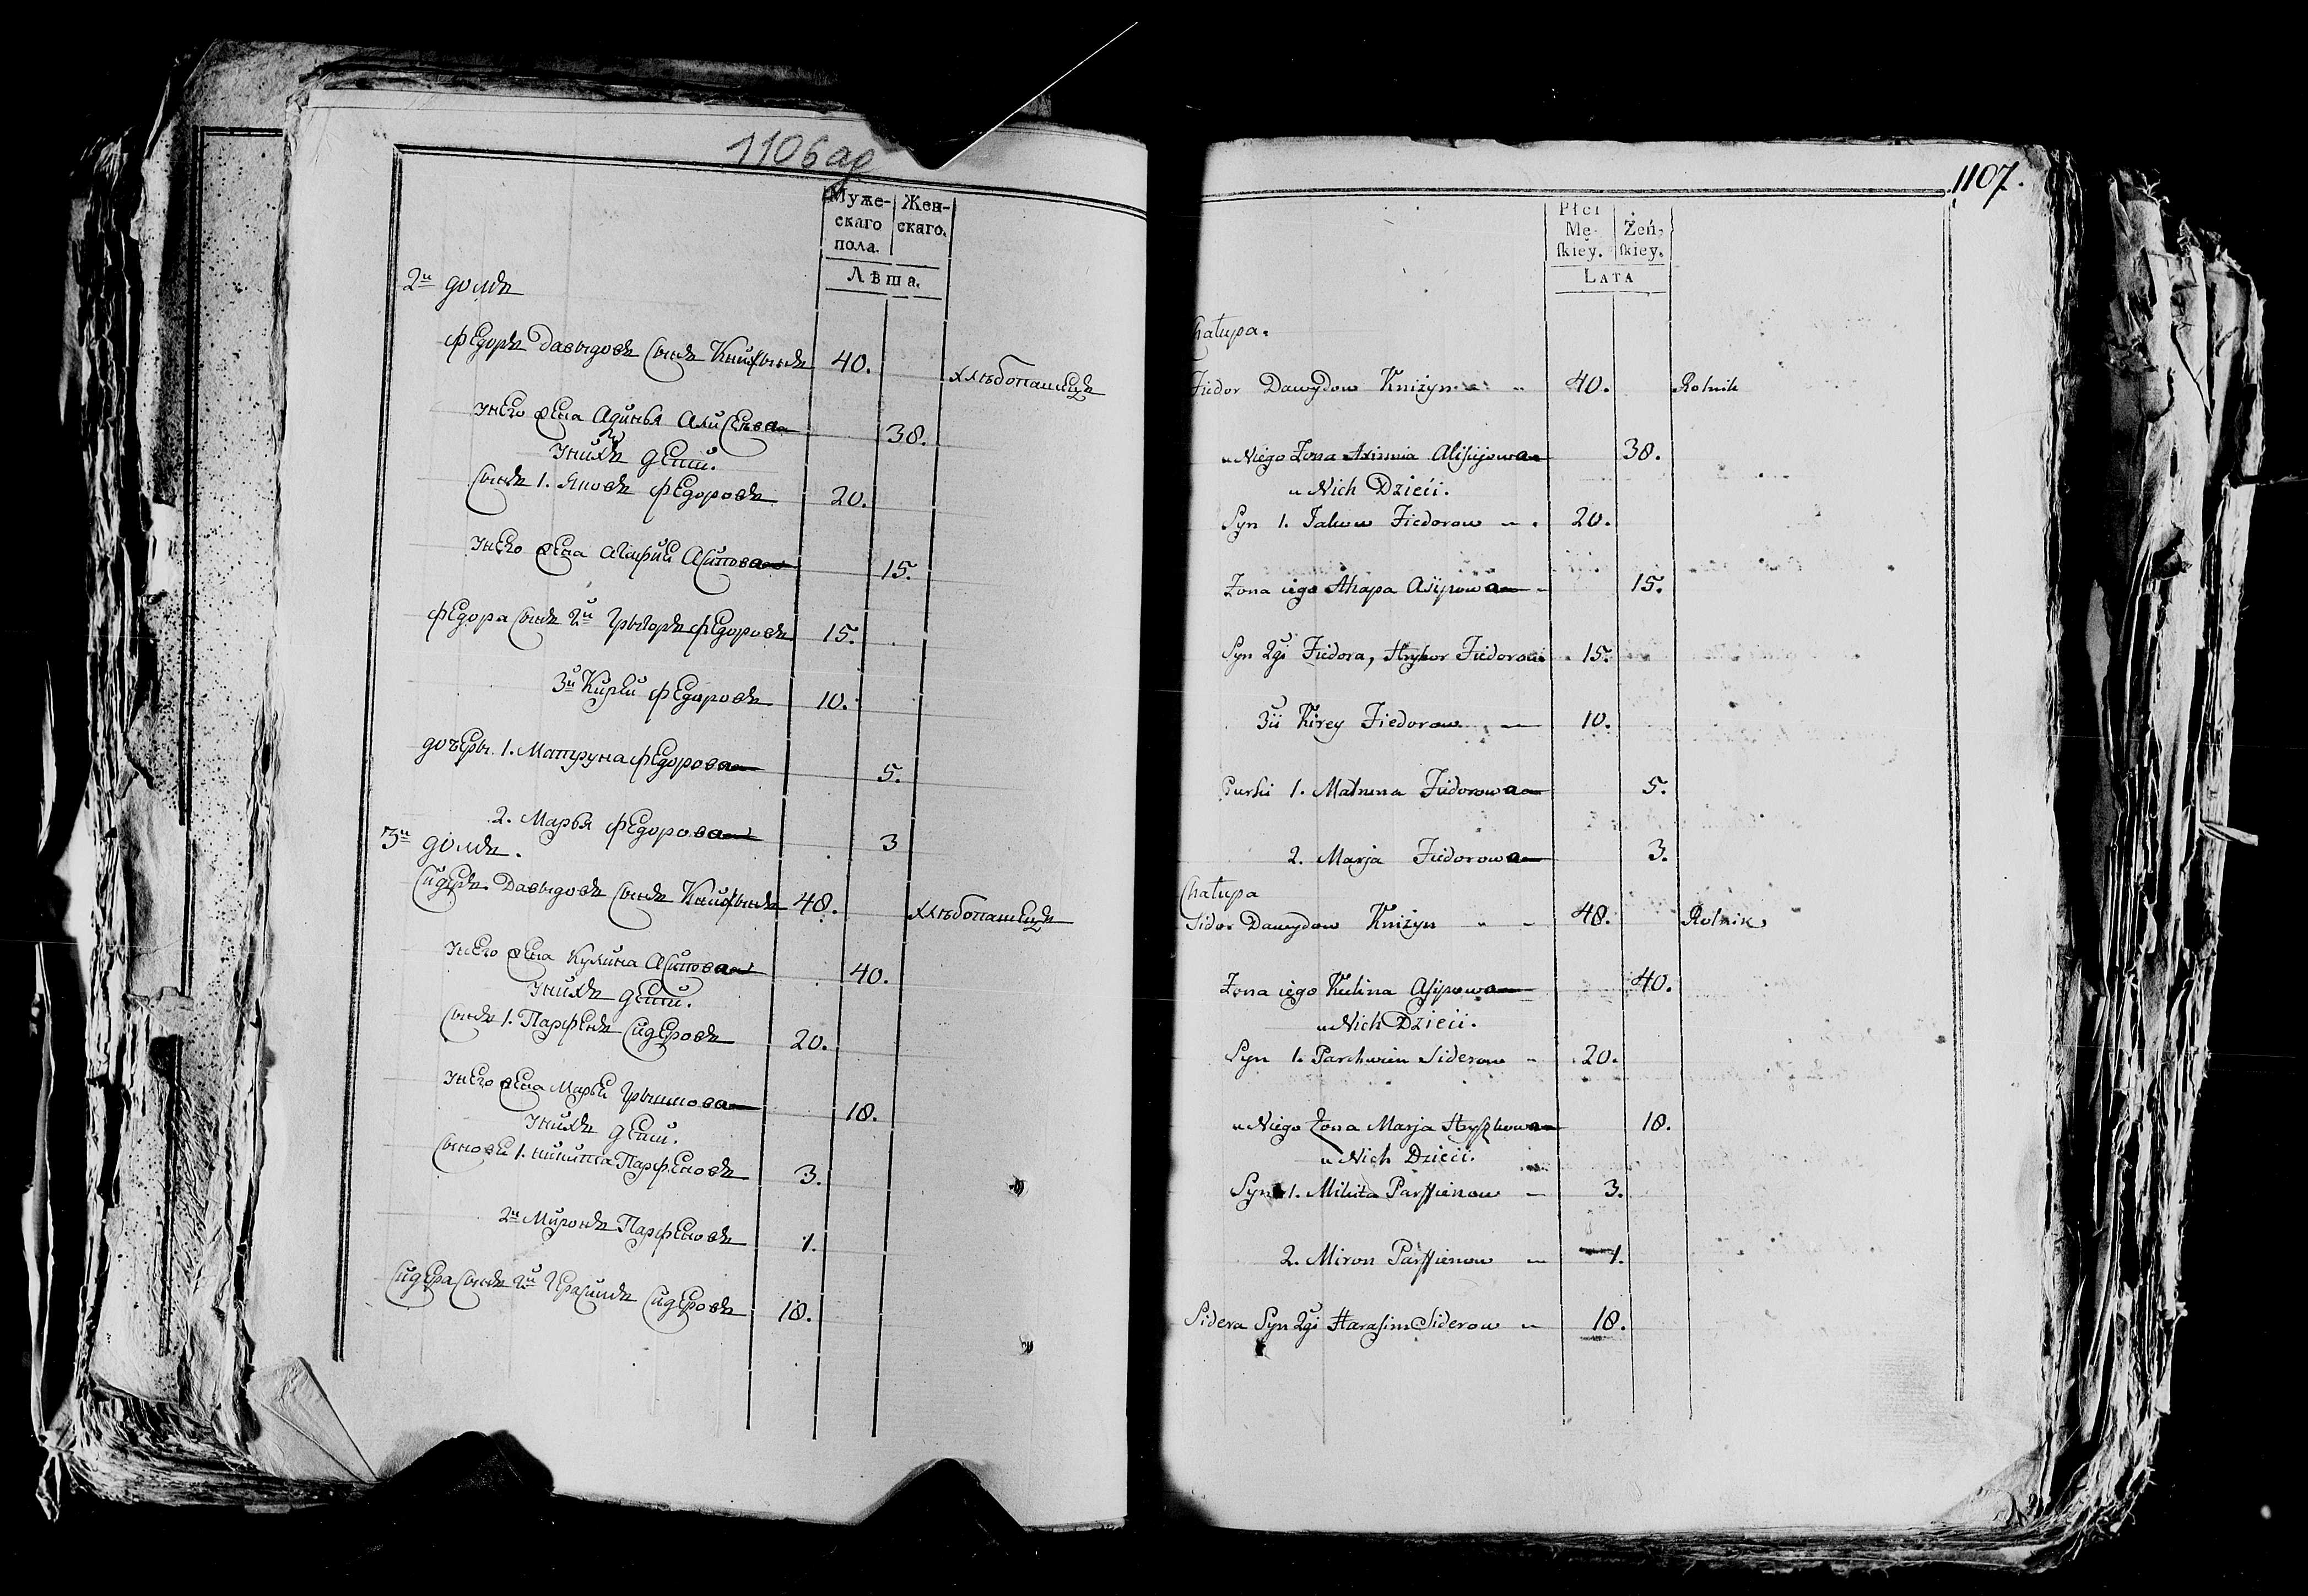 1106 аб
Муже-
скаго
пола.
Жен-
скаго.
Лѣта.
2й домъ
Федоръ Давыдовъ сынъ Книжынъ 40. хлѣбопашецъ
унего жена Алисѣева 38.
унихъ дети.
сынъ 1. Яковъ Федоровъ 20.
унего жена Агафия Асипова 15.
Федора сынъ 2й Грыгоръ Федоровъ 15.
3й Кирѣй Федоровъ 10.
дочеры 1. Матруна Федорова 5.
2. Марья Федорова 3
3й домъ.
Сидеръ Давыдовъ сынъ Книжынъ 48. хлѣбопашецъ
унего жена Кулина Асипова 40.
унихъ дети.
сынъ 1. Парфенъ Сидеровъ 20.
унего жена Марья Грышкова 18.
унихъ дети.
сыновьи 1. Никита Парфеновъ 3.
2й Миронъ Парфеновъ 1.
Сидера сынъ 2й Герасимъ Сидеровъ 18.
1107.
Płci
Mę-
ſkiey.
Żeń,
ſkiey.
LATA
Chałupa.
Fiedor Dawydow Kniżyn 40. Rolnik
u Niego Żona Axinnia Alisiejowa 38.
u Nich Dzieci.
Syn 1. Jakow Fiedorow 20.
Żona iego Ahapa Asipowa 15.
Syn 2gi Fiedora, Hryhor Fiedorow 15.
3ci Kirey Fiedorow 10.
Curki 1. Matruna Fiedorowa 5.
2. Marja Fiedorowa 3.
Chałupa
Sidor Dawydow Kniżyn 48. Rolnik
Żona iego Kulina Asipowa 40.
u Nich Dzieci.
Syn 1. Parchwien Siderow 20.
u Niego Żona Marja Hryszkowa 18.
u Nich Dzieci.
Syn 1. Mikita Parffienow 3.
2. Miron Parffienow 1.
Sidera Syn 2gi Harasim Siderow 18.